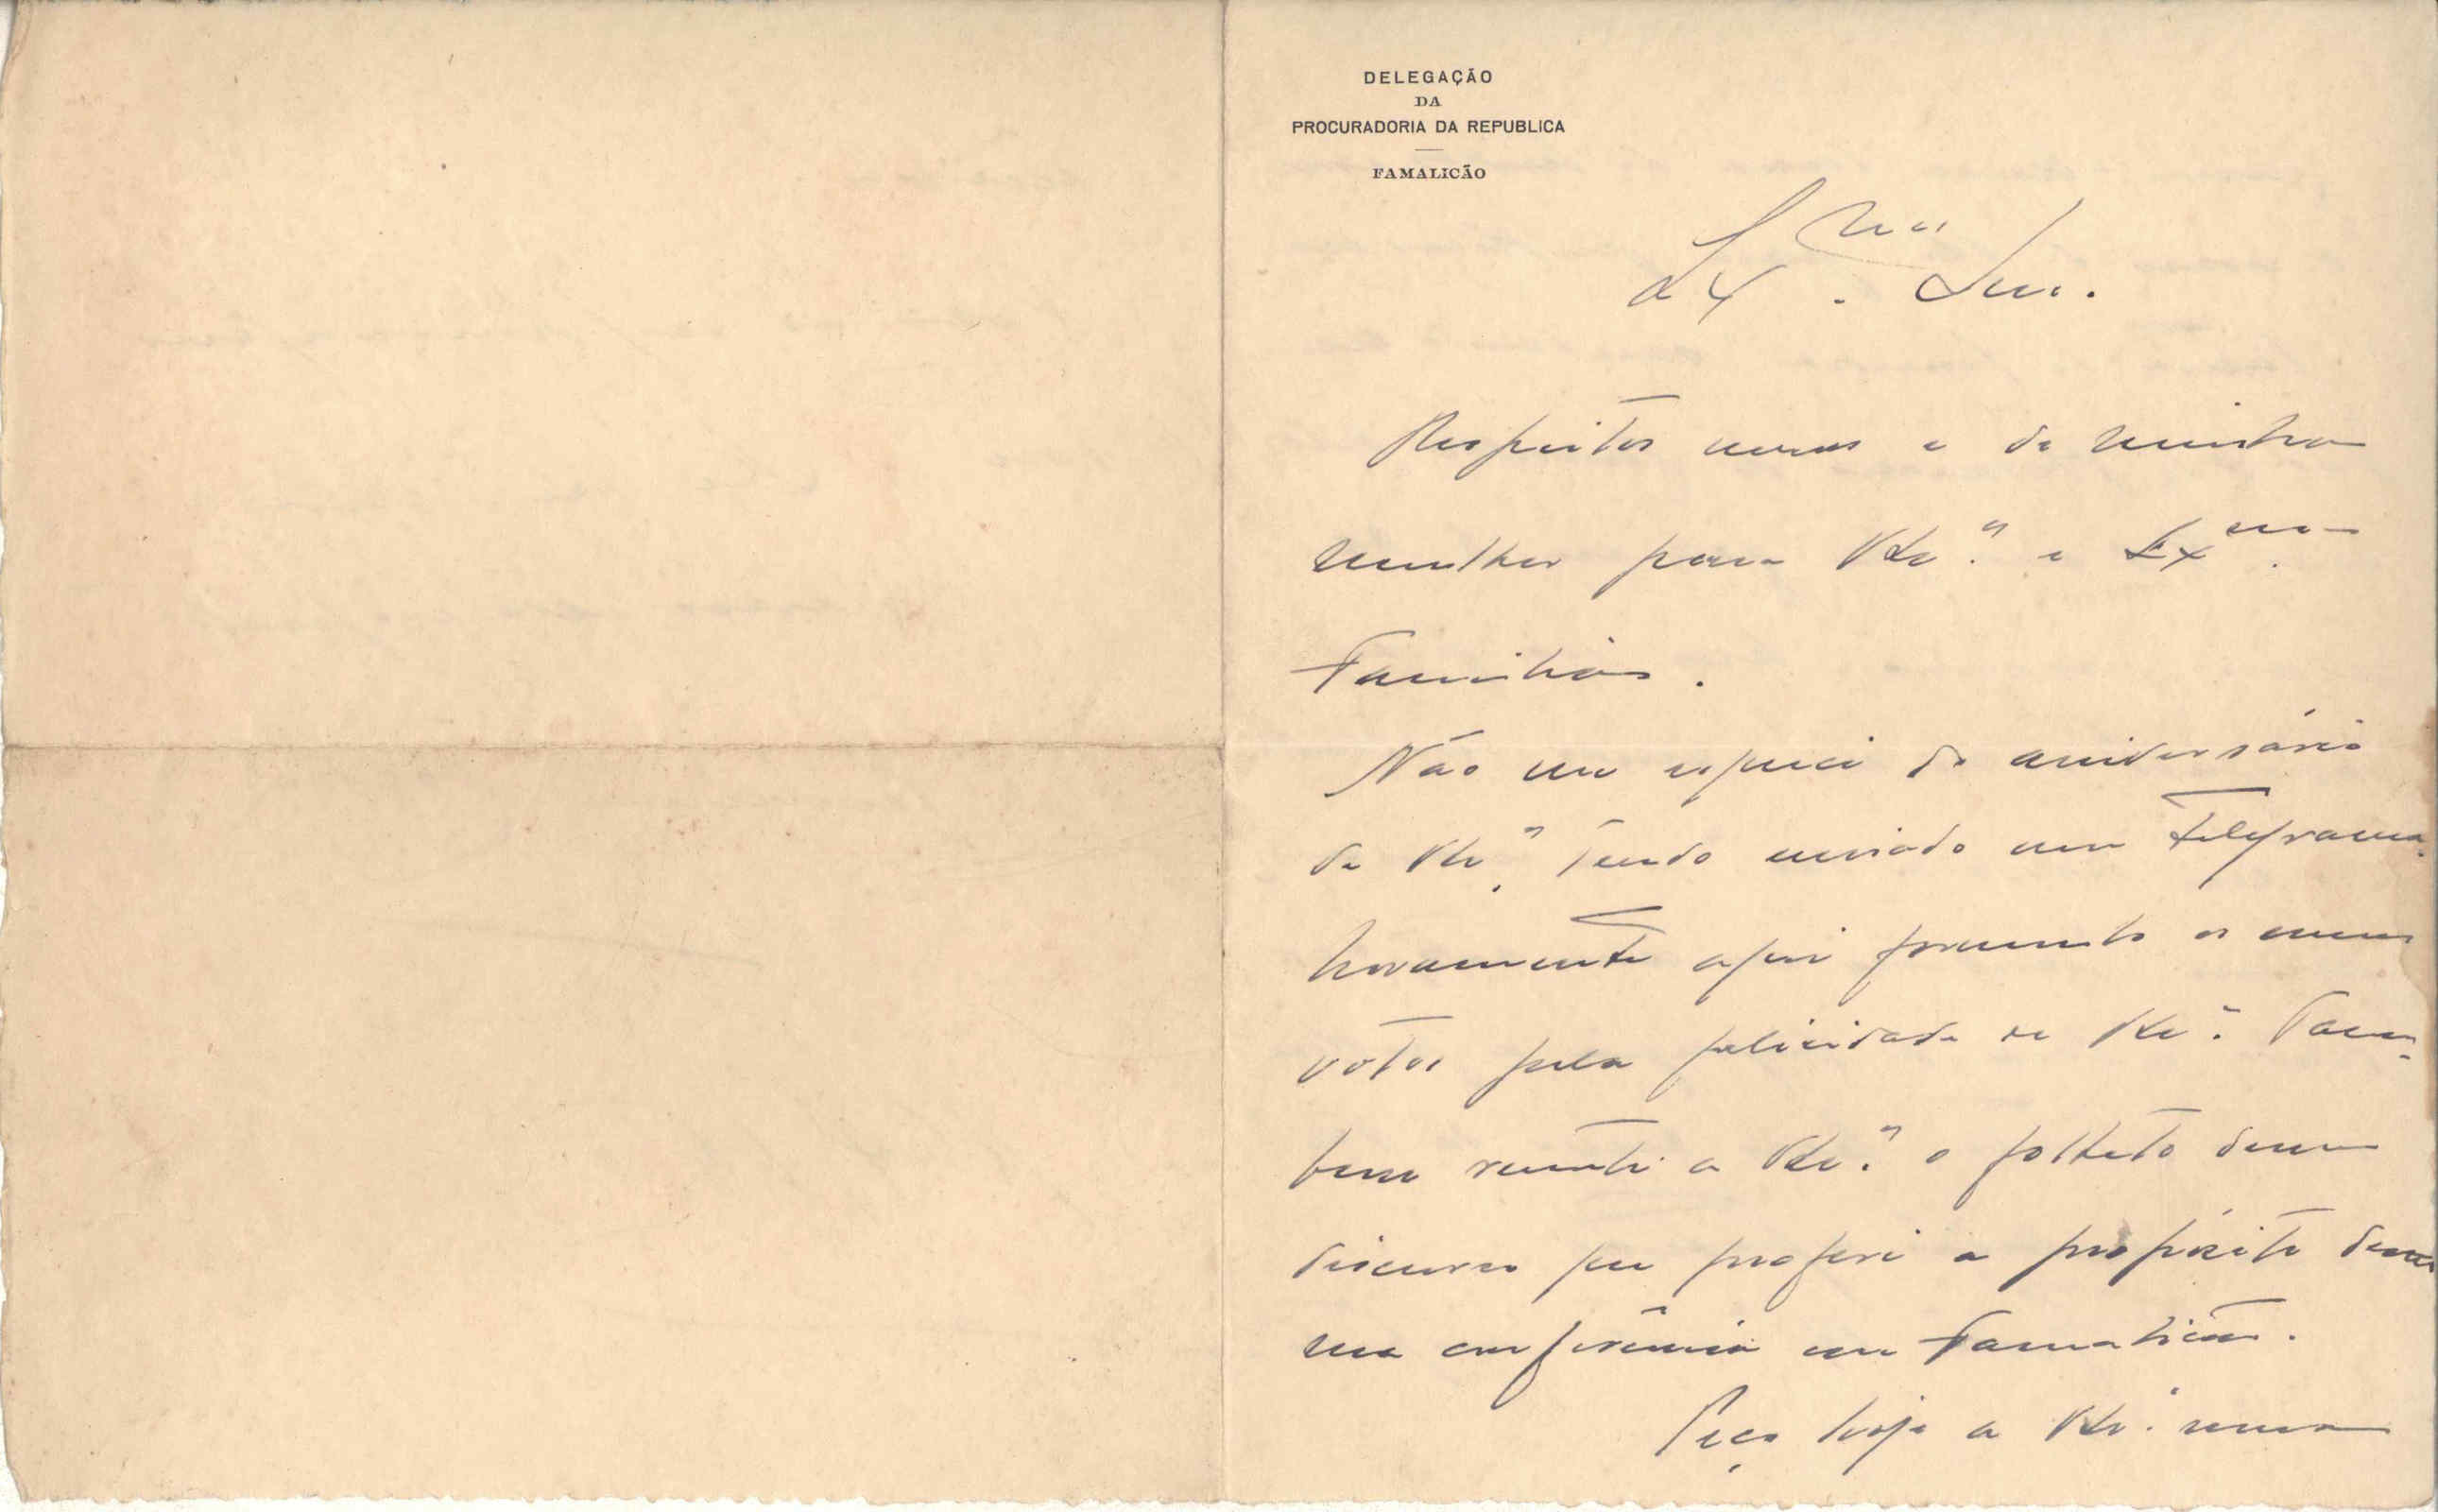 DELEGAÇÃO
DA
PROCURADORIA DA REPUBLICA
FAMALICÃO
Ex.mo Snr.
Respeitos meus e de minha
mulher para V. Ex.ª e Ex.ma
Familia.
Não me esqueci do aniversário
de V. Ex.ª tendo enviado um telegrama.
Novamente aqui formulo os meus
votos pela felicidade de V. Ex.ª. Tam-
bem remeti a V. Ex.ª o folheto dum
discurso que proferi a propósito
uma conferência em Famalicão.
Peço hoje a V. Ex.ª uma